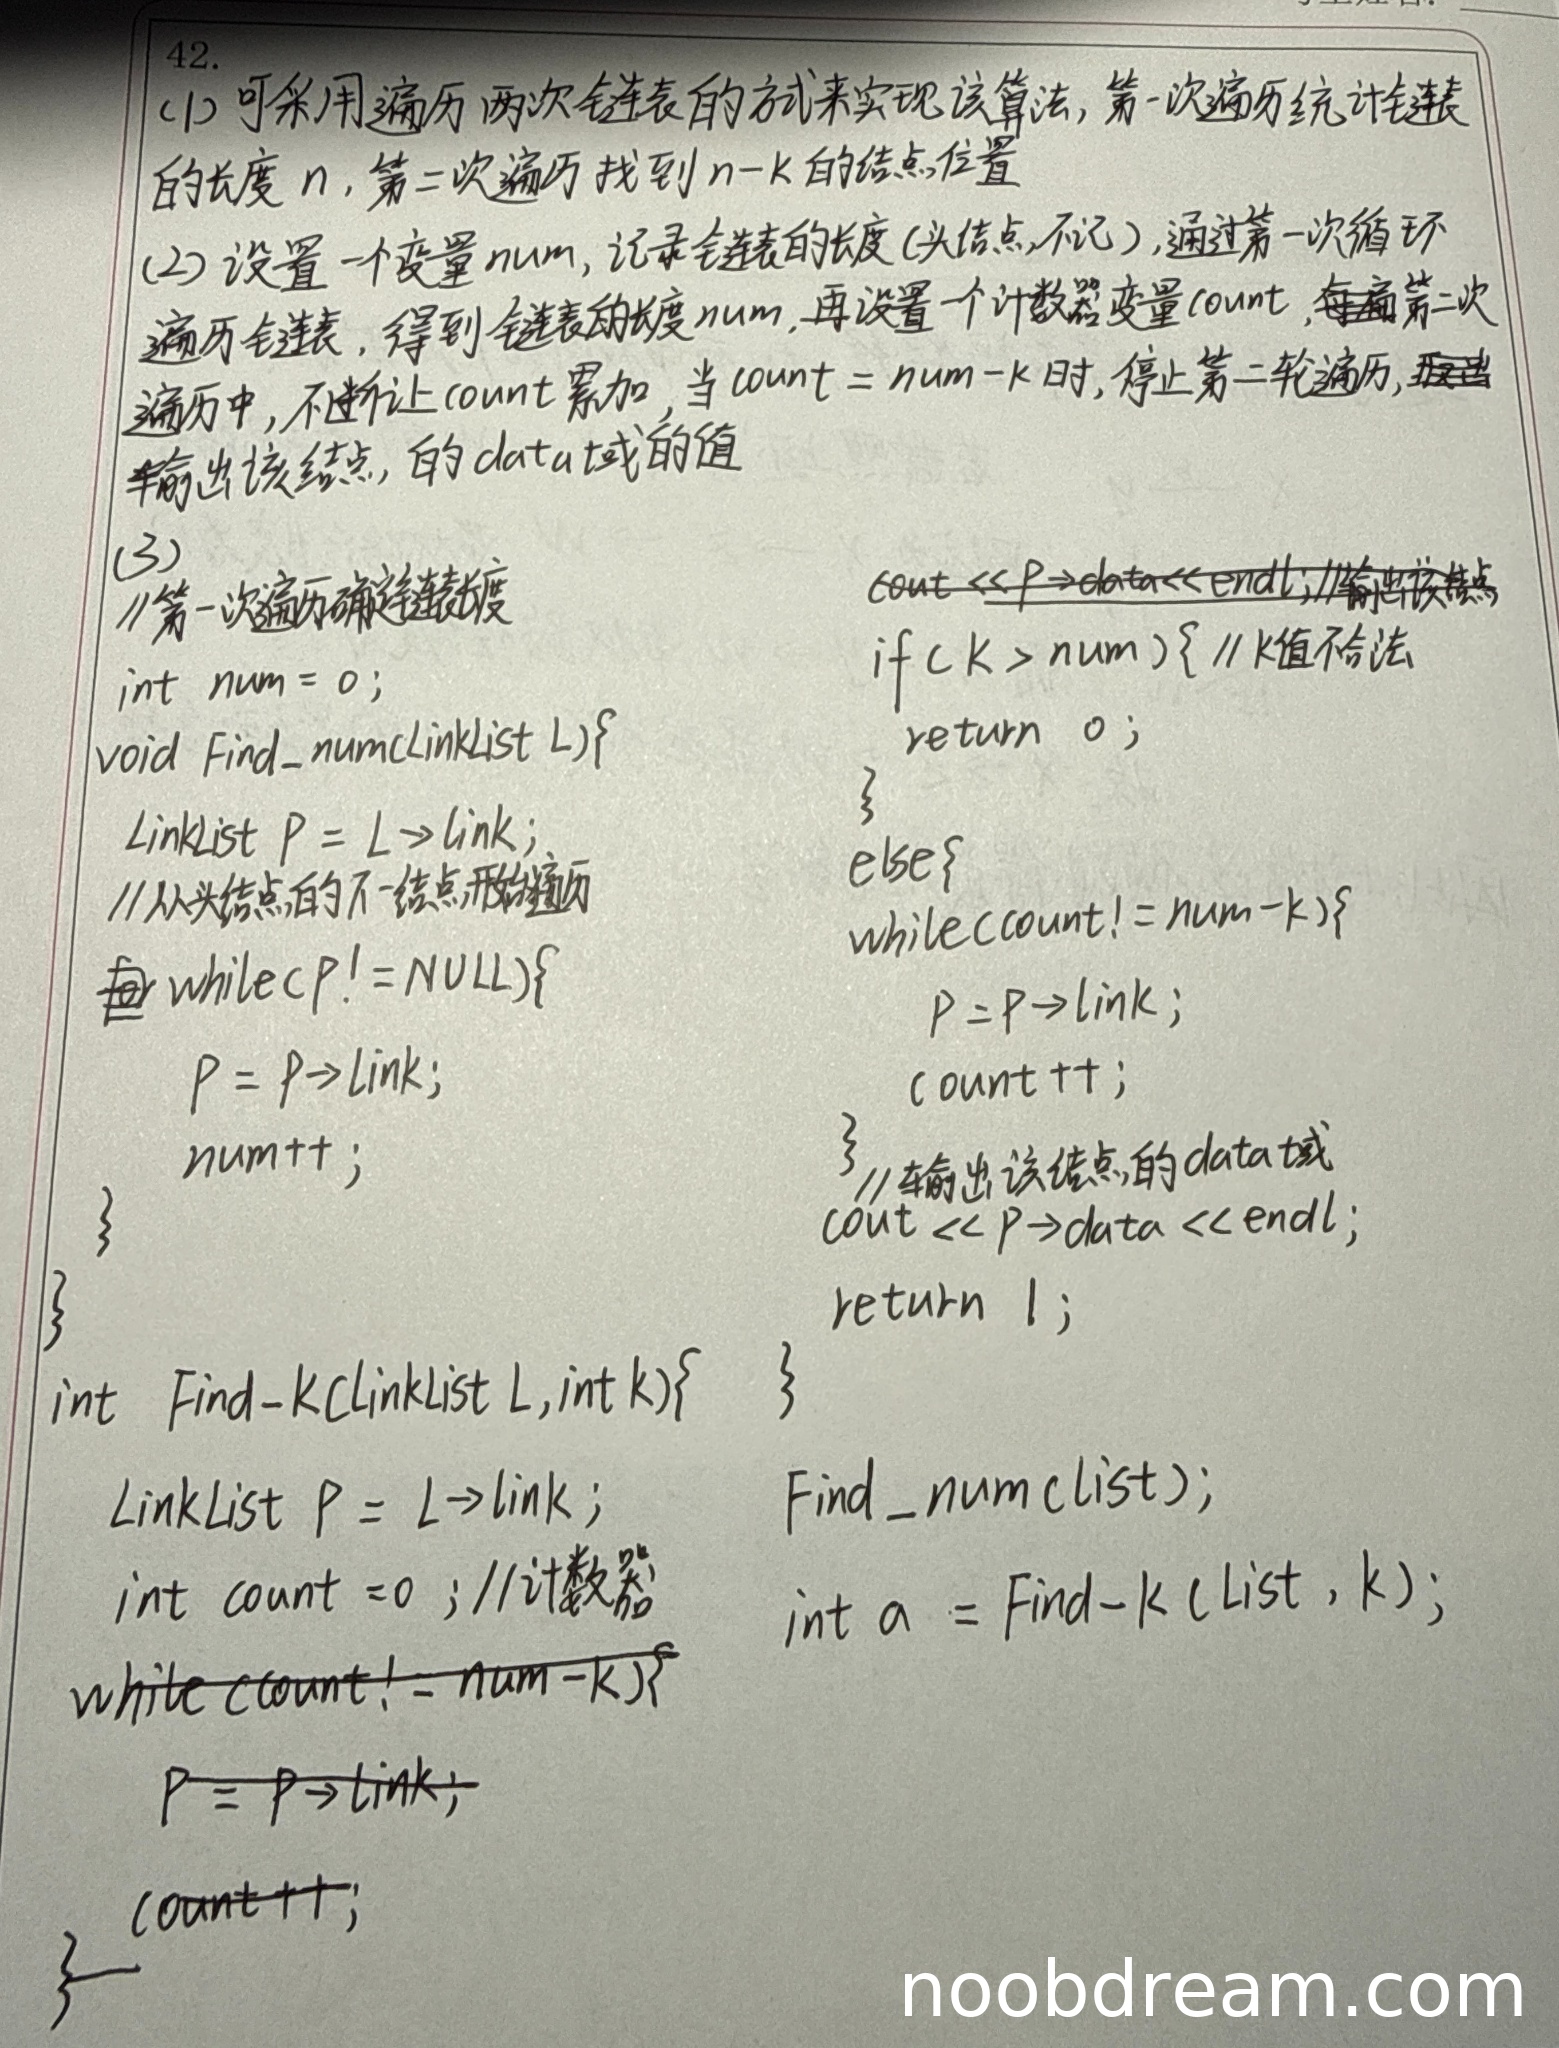 42.
(1) 可采用遍历两次链表的方式来实现该算法, 第一次遍历统计链表
的长度 n, 第二次遍历找到 n-k 的结点位置
(2) 设置一个变量 num, 记录链表的长度(头结点不记), 通过第一次循环
遍历链表, 得到链表的长度 num, 再设置一个计数器变量 count, 第二次
遍历中, 不断让 count 累加, 当 count = num-k 时, 停止第二轮遍历,
输出该结点的 data 域的值
(3)
//第一次遍历确定链表长度
int num = 0;
void Find_num(LinkList L){
LinkList P = L->link;
//从头结点的下一结点开始遍历
for while(P!=NULL){
P = P->link;
num++;
}
}
int Find-K(LinkList L, int k){
LinkList P = L->link;
int count =0 ; //计数器
while (count!= num-k){
P = P->link;
count++;
}
cout << P->data<< endl; //输出该结点
if( K > num ){ // K值不合法
return 0;
}
else{
while(count!= num-k){
P = P->link;
count++;
}
//输出该结点的data域
cout << P->data << endl;
return 1;
}
Find_num(list);
int a = Find-k (List, k);
noobdream.com